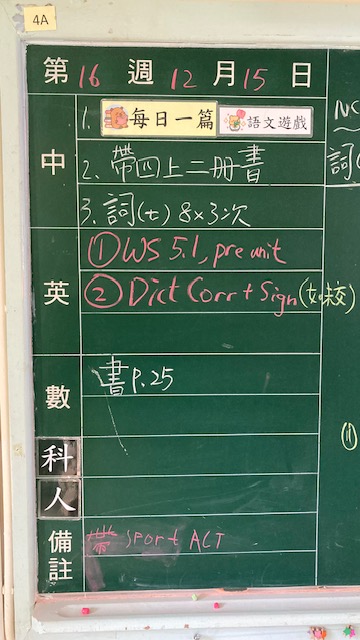 4A
第 16 週 12 月 15 日
中
1. 每日一篇 語文遊戲
2. 帶四上二冊書
3. 詞(七) 8×3次
英
① WS 5.1, pre unit
② Dict Corr + Sign (如未交)
數
書 P.25
科
人
備註
帶 SPORT ACT
詞
(11)